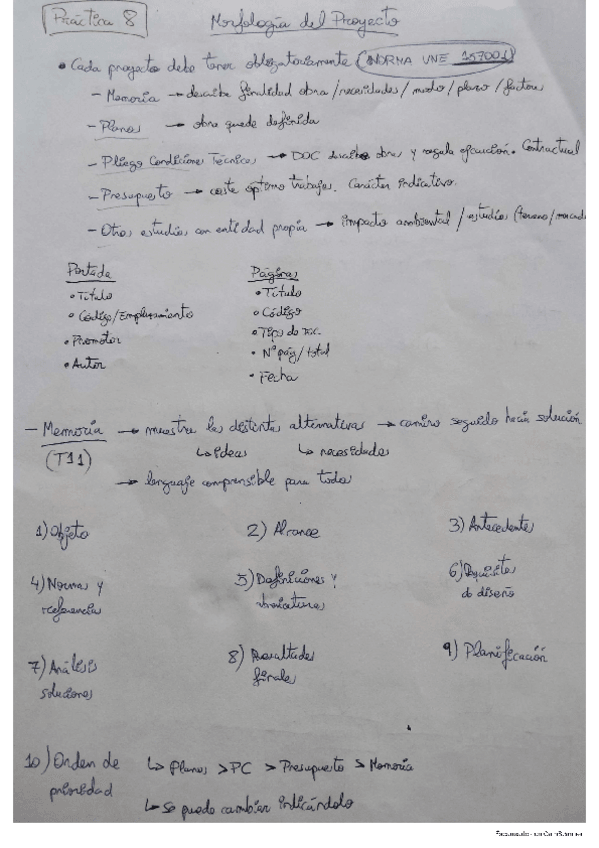 Práctica 8
Morfología del Proyecto
• Cada proyecto debe tener obligatoriamente (NORMA UNE 157001)
- Memoria → describe finalidad obra/necesidades/modo/plazo/factores
- Planos → obra quede definida
- Pliego Condiciones Técnicas → DOC describe obras y regula ejecución. Contractual
- Presupuesto → coste óptimo trabajos. Carácter indicativo.
- Otros estudios con entidad propia → impacto ambiental/estudios (terreno/mercado
Portada
• Título
• Código/Emplazamiento
• Promotor
• Autor
Páginas
• Título
• Código
• Tipo de DOC.
• Nº pág/total
• Fecha
- Memoria → muestre las distintas alternativas → camino seguido hacia solución
(T11)
↳ ideas
↳ necesidades
→ lenguaje comprensible para todos
1) Objeto
2) Alcance
3) Antecedentes
4) Normas y
referencias
5) Definiciones y
abreviaturas
6) Requisitos
de diseño
7) Análisis
soluciones
8) Resultados
finales
9) Planificación
10) Orden de
prioridad
↳ Planos > PC > Presupuesto > Memoria
↳ Se puede cambiar indicándolo